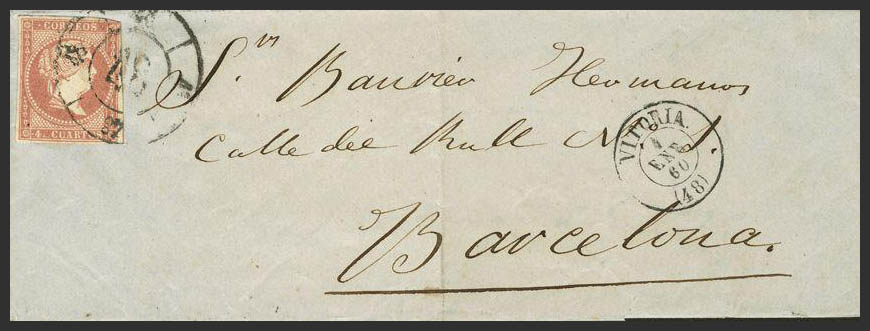 CORREOS
4 CUARTOS
Sres Bauxier Hermanos
Calle del Bull N 1.
Barcelona.
VITORIA.
4
ENE
60
(48)